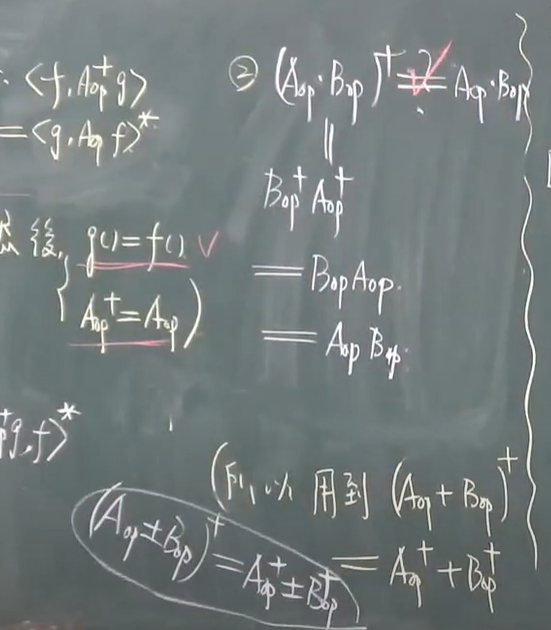 <f, Aop⁺ g>
= <g, Aop f>*
後, g() = f() ✓
{ Aop⁺ = Aop )
g, f>*
② (Aop · Bop)⁺ ?= Aop · Bop
||
Bop⁺ Aop⁺
= Bop Aop.
= Aop Bop.
(所以 用到 (Aop + Bop)⁺
= Aop⁺ + Bop⁺
(Aop ± Bop)⁺ = Aop⁺ ± Bop⁺